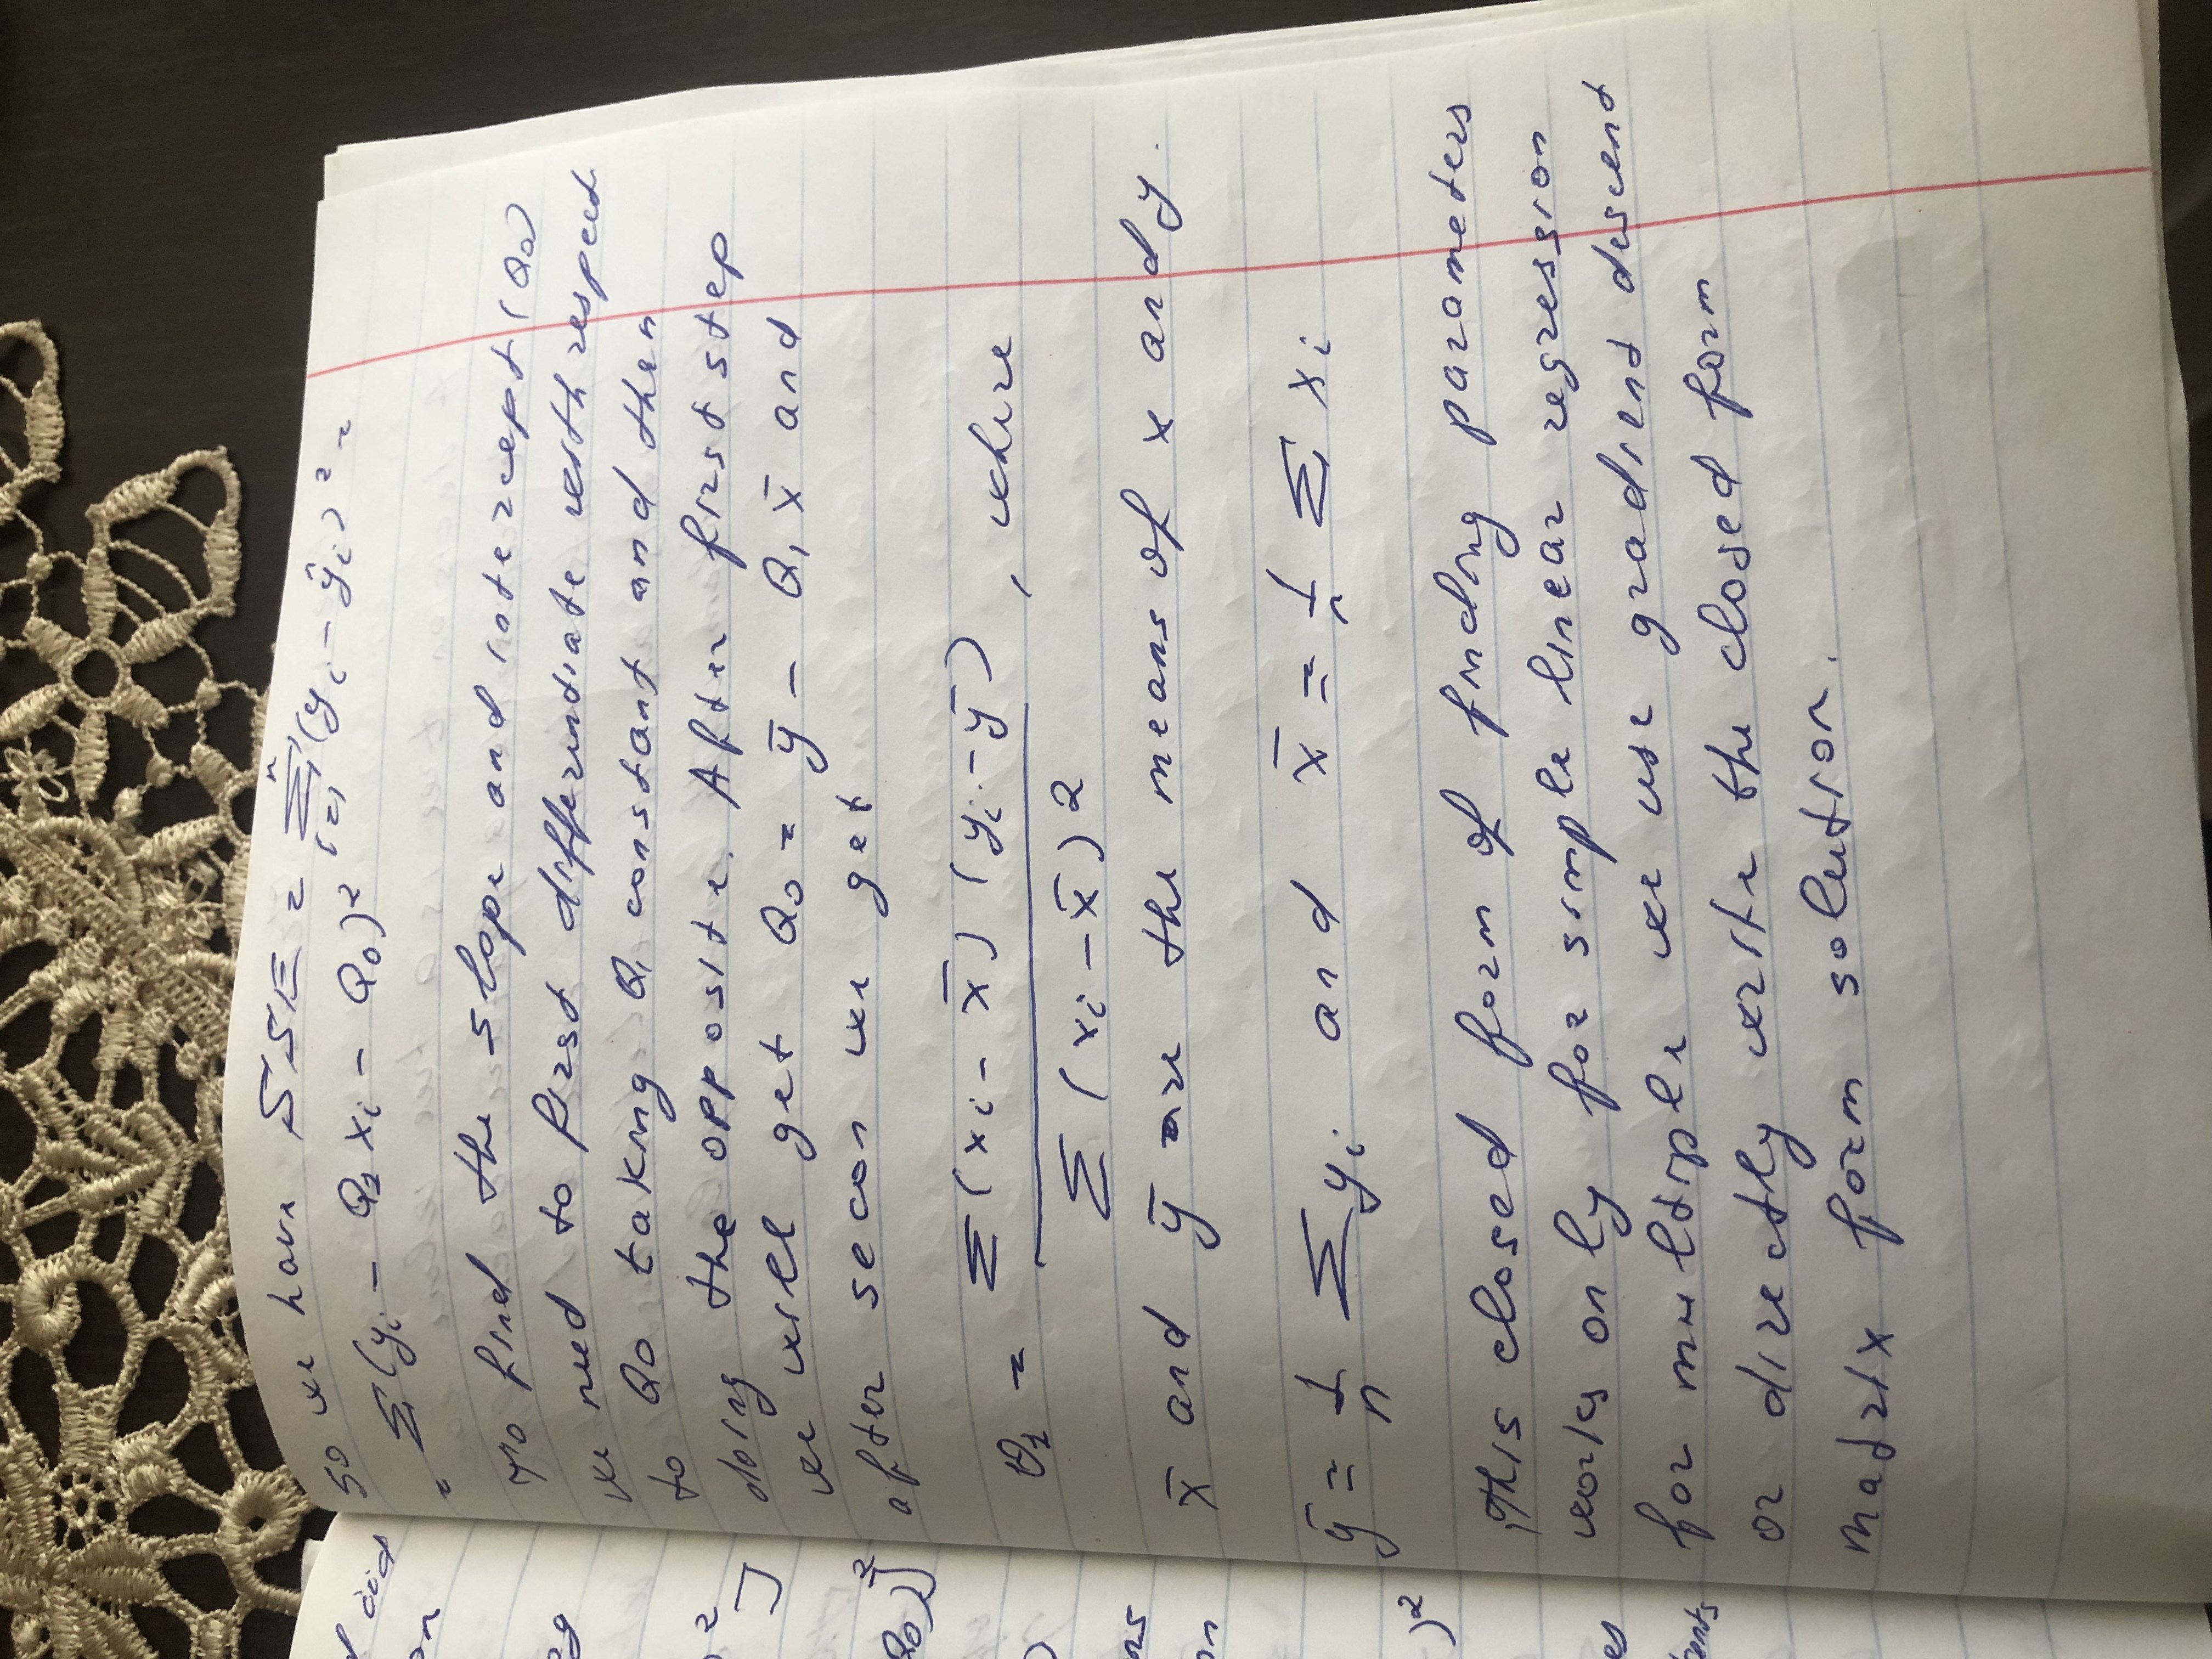 So we have SSE = n∑i=1 (yi - ŷi)² =
= ∑(yi - Q1 xi - Q0)²
To find the slope and intercept (Q0)
we need to first differentiate with respect
to Q0 taking Q1 constant and then
doing the opposite. After first step
we will get Q0 = ȳ - Q1 x̄ and
after secon we get
θ1 = ∑(xi - x̄)(yi - ȳ) / ∑(xi - x̄)², where
x̄ and ȳ are the means of x and y.
ȳ = 1/n ∑yi and x̄ = 1/n ∑xi
This closed form of finding parameters
works only for simple linear regression
for multiple we use gradient descent
or directly write the closed form
matrix form solution.